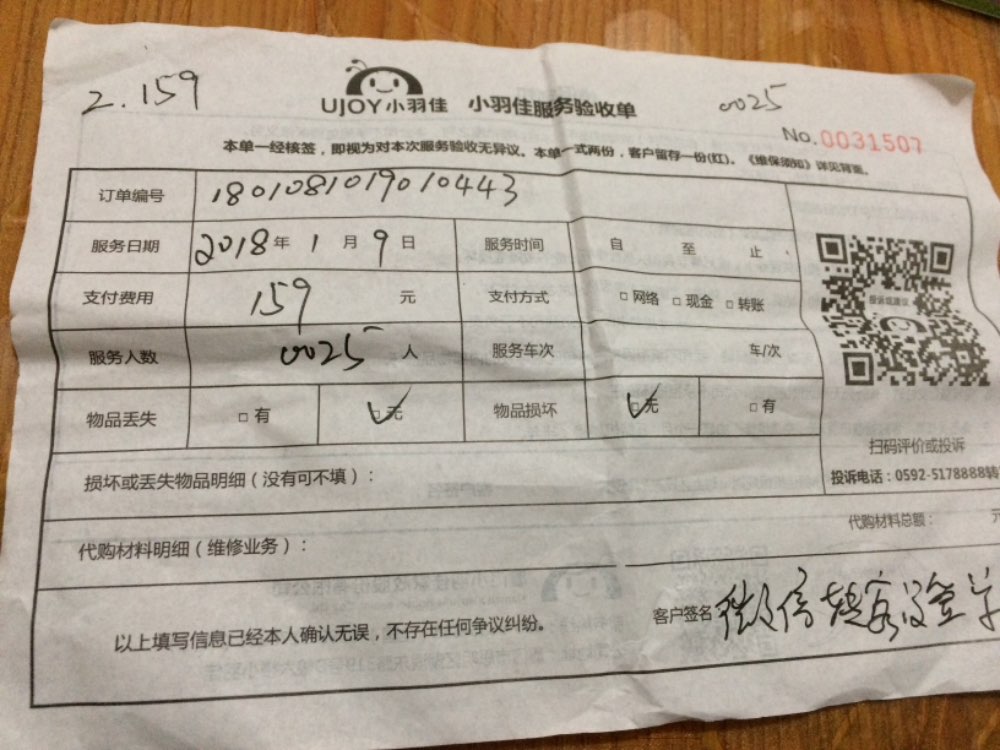 2.159
UJOY小羽佳 小羽佳服务验收单
0025
No.0031507
本单一经核签，即视为对本次服务验收无异议。本单一式两份，客户留存一份(红)。《维保须知》详见背面。
订单编号 1801081019010443
服务日期 2018年1月9日 服务时间 自 至 止
支付费用 159 元 支付方式 □网络 □现金 □转账
服务人数 0025 人 服务车次 车/次
物品丢失 □有 □无 物品损坏 □无 □有
投诉或建议
扫码评价或投诉
投诉电话：0592-5178888转
损坏或丢失物品明细（没有可不填）：
代购材料总额： 元
代购材料明细（维修业务）：
客户签名 微信
以上填写信息已经本人确认无误，不存在任何争议纠纷。